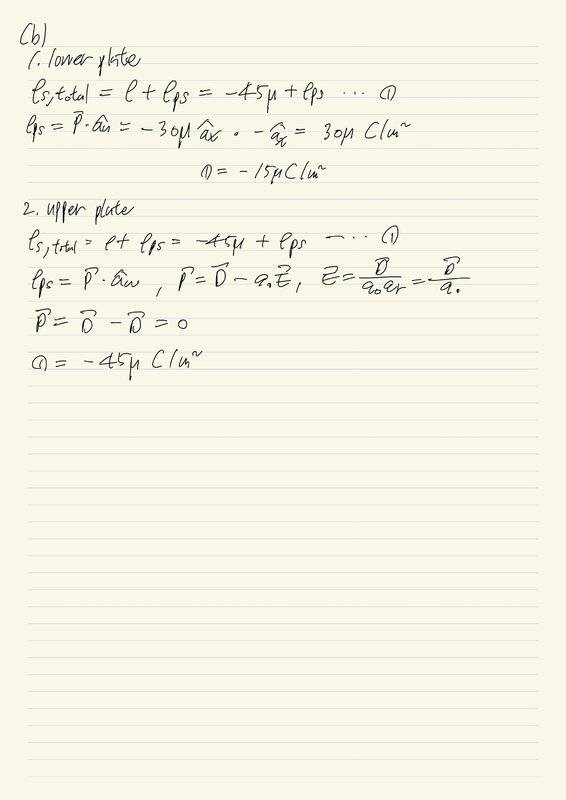 (b)
1. lower plate
ρs,total = ρ + ρps = -45μ + ρps ... ①
ρps = P⃗ · ân = -30μ âx · -âx = 30μ C/m²
① = -15μ C/m²
2. upper plate
ρs,total = ρ + ρps = -45μ + ρps ... ①
ρps = P⃗ · ân , P⃗ = D⃗ - ε₀E⃗, E⃗ = D⃗/ε₀εr = D⃗/ε₀
P⃗ = D⃗ - D⃗ = 0
① = -45μ C/m²